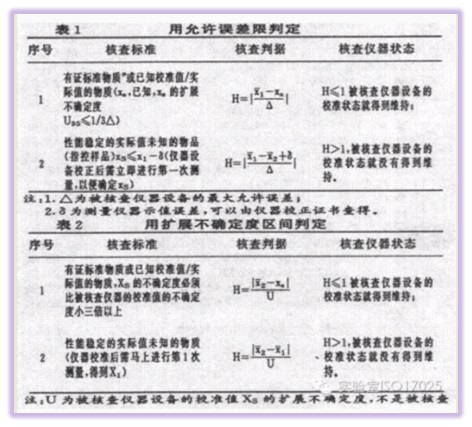 表1 用允许误差限判定
序号 核查标准 核查判据 核查仪器状态
有证标准物质"或已知校准值/实
际值的物质(xs,已知,xs 的扩展
1 不确定度 H=|x̄1-xs/Δ| H≤1被核查仪器设备的
U95≤1/3△) 校准状态就得到维持;
性能稳定的实际值未知的物品
2 (指控样品)xS≤x1-δ(仪器设 H=|x̄1-x̄2+δ/Δ| H>1,被核查仪器设备的
备校正后需立即进行第一次测 校准状态就没有得到维
量,以便确定xS) 持。
注:1.△为被核查仪器设备的最大允许误差;
2.δ为测量仪器示值误差,可以由仪器校正证书查得。
表2 用扩展不确定度区间判定
序号 核查标准 核查判据 核查仪器状态
有证标准物质或已知校准值/实
1 际值的物质,XS的不确定度必须 H=|x̄2-xs|/U H≤1被核查仪器设备的
比被核查仪器的校准值的不确定 校准状态就得到维持;
度小三倍以上
性能稳定的实际值未知的物质 H>1,被核查仪器设备的
2 (仪器校准后需马上进行第1次 H=|x̄2-x̄1|/U 校准状态就没有得到维
测量,得到X1) 持。
实验室ISO17025
注:U为被核查仪器设备的校准值XS的扩展不确定度,不是被核查